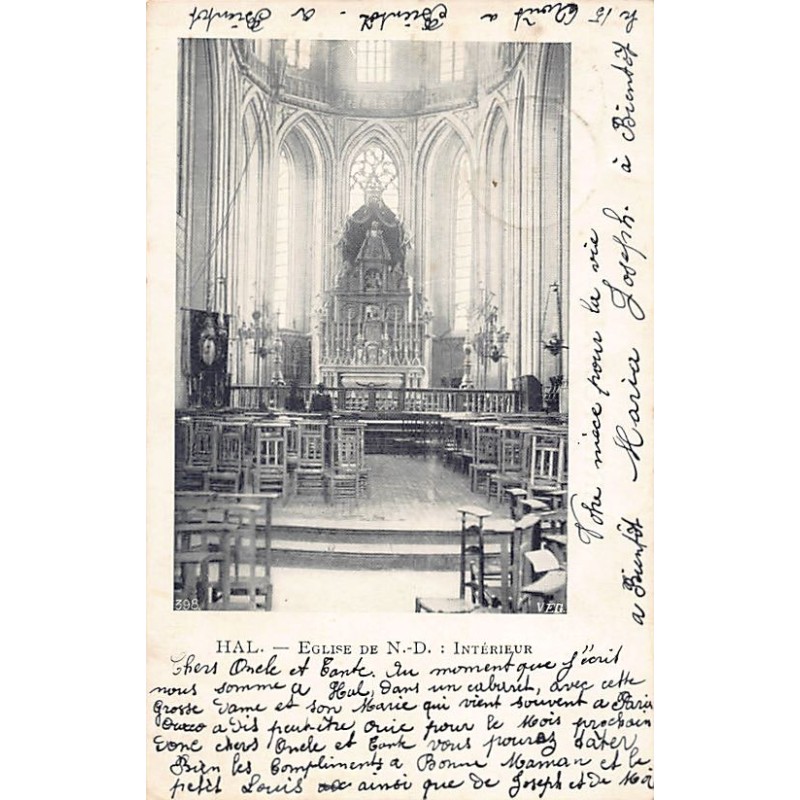 HAL. — EGLISE DE N.-D. : INTÉRIEUR
Chers Oncle et Tante. Au moment que J'écrit
nous somme a Hal, dans un cabaret, avec cette
Grosse Dame et son Marie qui vient souvent a Paris
a dis peut-être ouie pour le Mois prochain
Donc chers Oncle et Tante vous pourez dâter
Bien les Compliments a Bonne Maman et le
petit Louis ainsi que de Joseph et de Moi
Votre nièce pour la vie
a Bientôt Maria Joseph. à Bientôt
le 15 Aout a Bientôt. a Bientot
398
V.E.D.